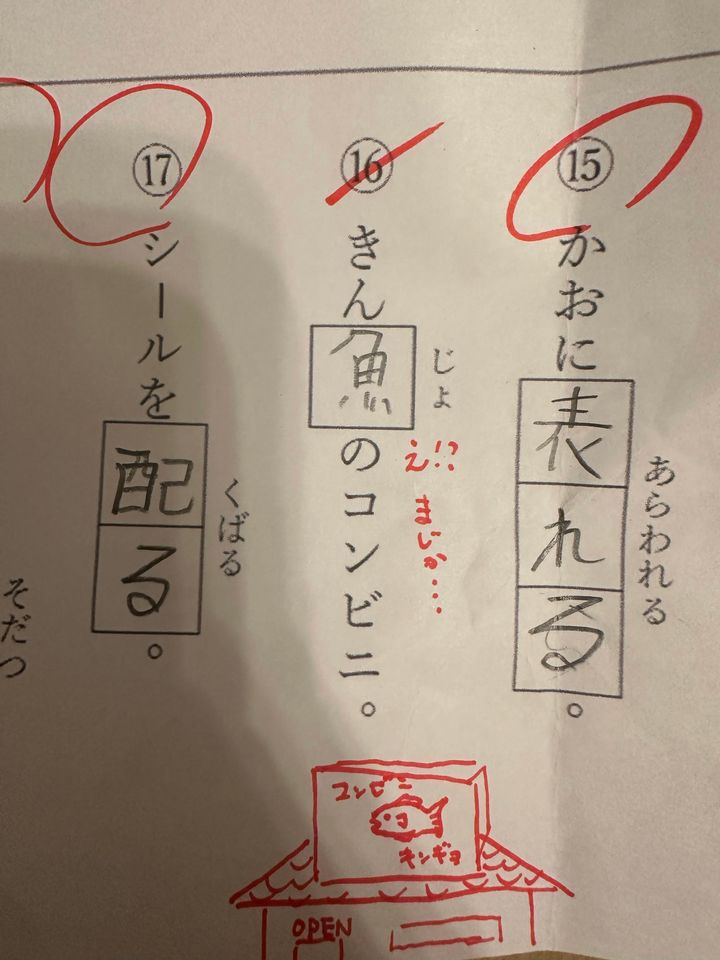 ⑮ かおに表れる。
あらわれる
⑯ きん魚のコンビニ。
じょ
え!?
まじか…
⑰ シールを配る。
くばる
そだつ
コンビニ
キンギョ
OPEN